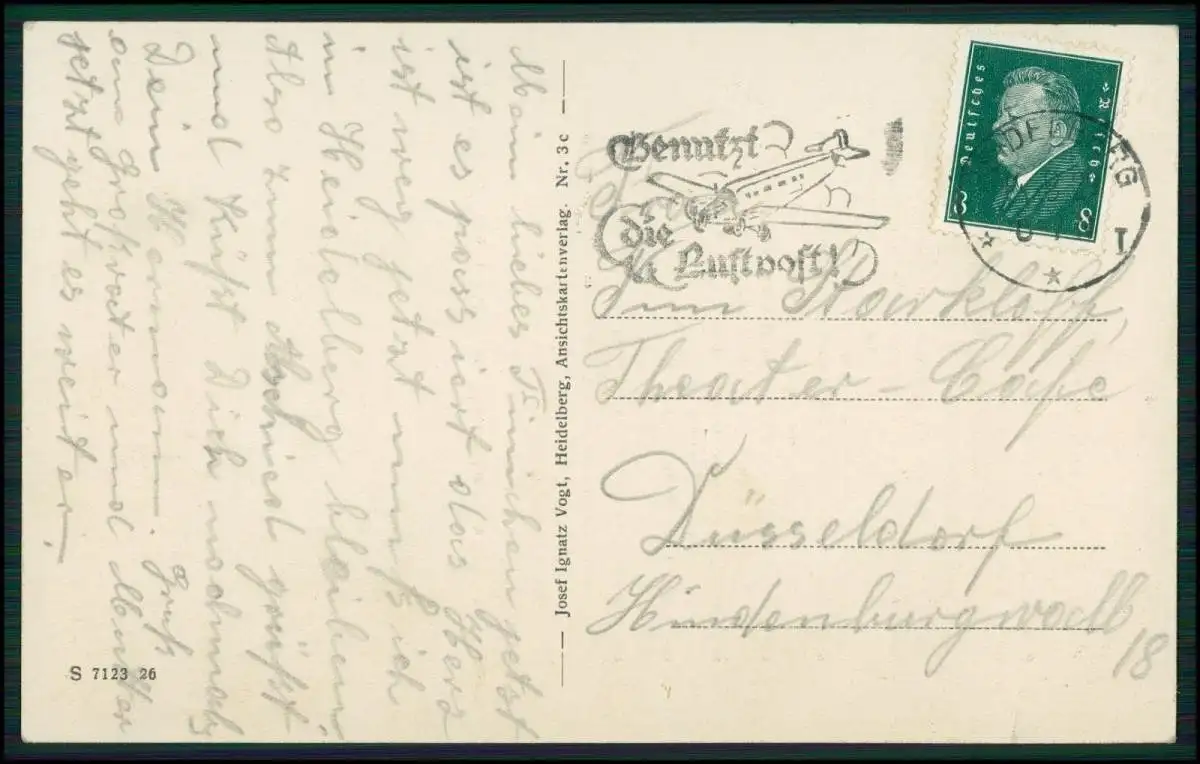 Mein liebes Finchen jetzt
ist es passiert das Herz
ist weg jetzt muß ich
im Heidelberg bleiben.
Also zum Abschied grüßt
und Küßt Dich nochmals
Dein Hermann. Gruß
an Großvater und Mutter
jetzt geht es weiter.
S 7123 26
Josef Ignatz Vogt, Heidelberg, Ansichtskartenverlag. Nr. 3c
Benutzt
die
Luftpost!
Deutsches Reich
8 8
Zum Karkoff,
Theater-Cafe
Düsseldorf
Hindenburgwall
18